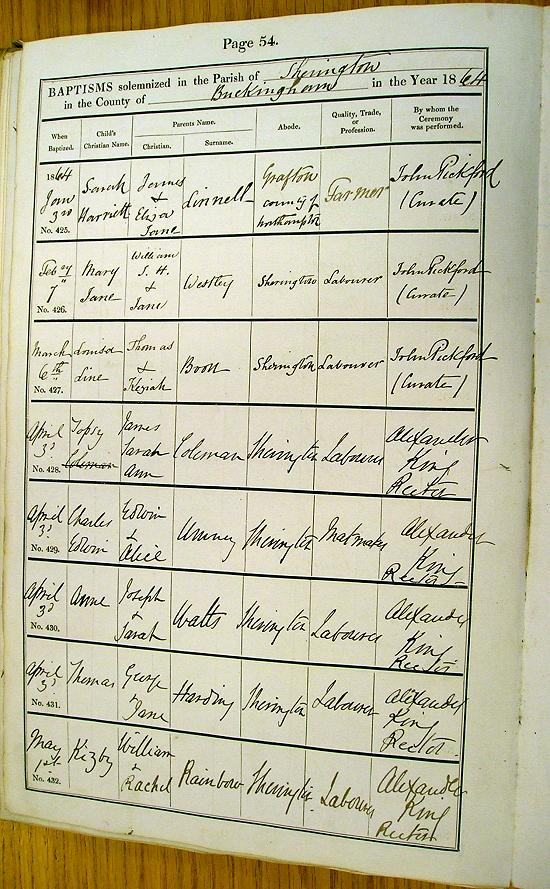 Page 54.
BAPTISMS solemnized in the Parish of Sherington
in the County of Buckingham in the Year 1864
When Baptized. Child's Christian Name. Parents Name. Christian. Surname. Abode. Quality, Trade, or Profession. By whom the Ceremony was performed.
1864 Jan 3rd No. 425. Sarah Harriett James & Eliza Jane Linnell Grafton county of Northampton Farmer John Pickford (Curate)
Feb 7" No. 426. Mary Jane William S. H. & Jane Westley Sherington Labourer John Pickford (Curate)
March 6th No. 427. Louisa Line Thomas & Keziah Boon Sherington Labourer John Pickford (Curate)
April 3d No. 428. Topsy Coleman James Sarah Ann Coleman Sherington Labourer Alexander King Rector
April 3d No. 429. Charles Edwin Edwin & Alice Umney Sherington Matmaker Alexander King Rector
April 3d No. 430. Anne Joseph & Sarah Watts Sherington Labourer Alexander King Rector
April 3d No. 431. Thomas George & Jane Harding Sherington Labourer Alexander King Rector
May 1st No. 432. Kizby William & Rachel Rainbow Sherington Labourer Alexander King Rector